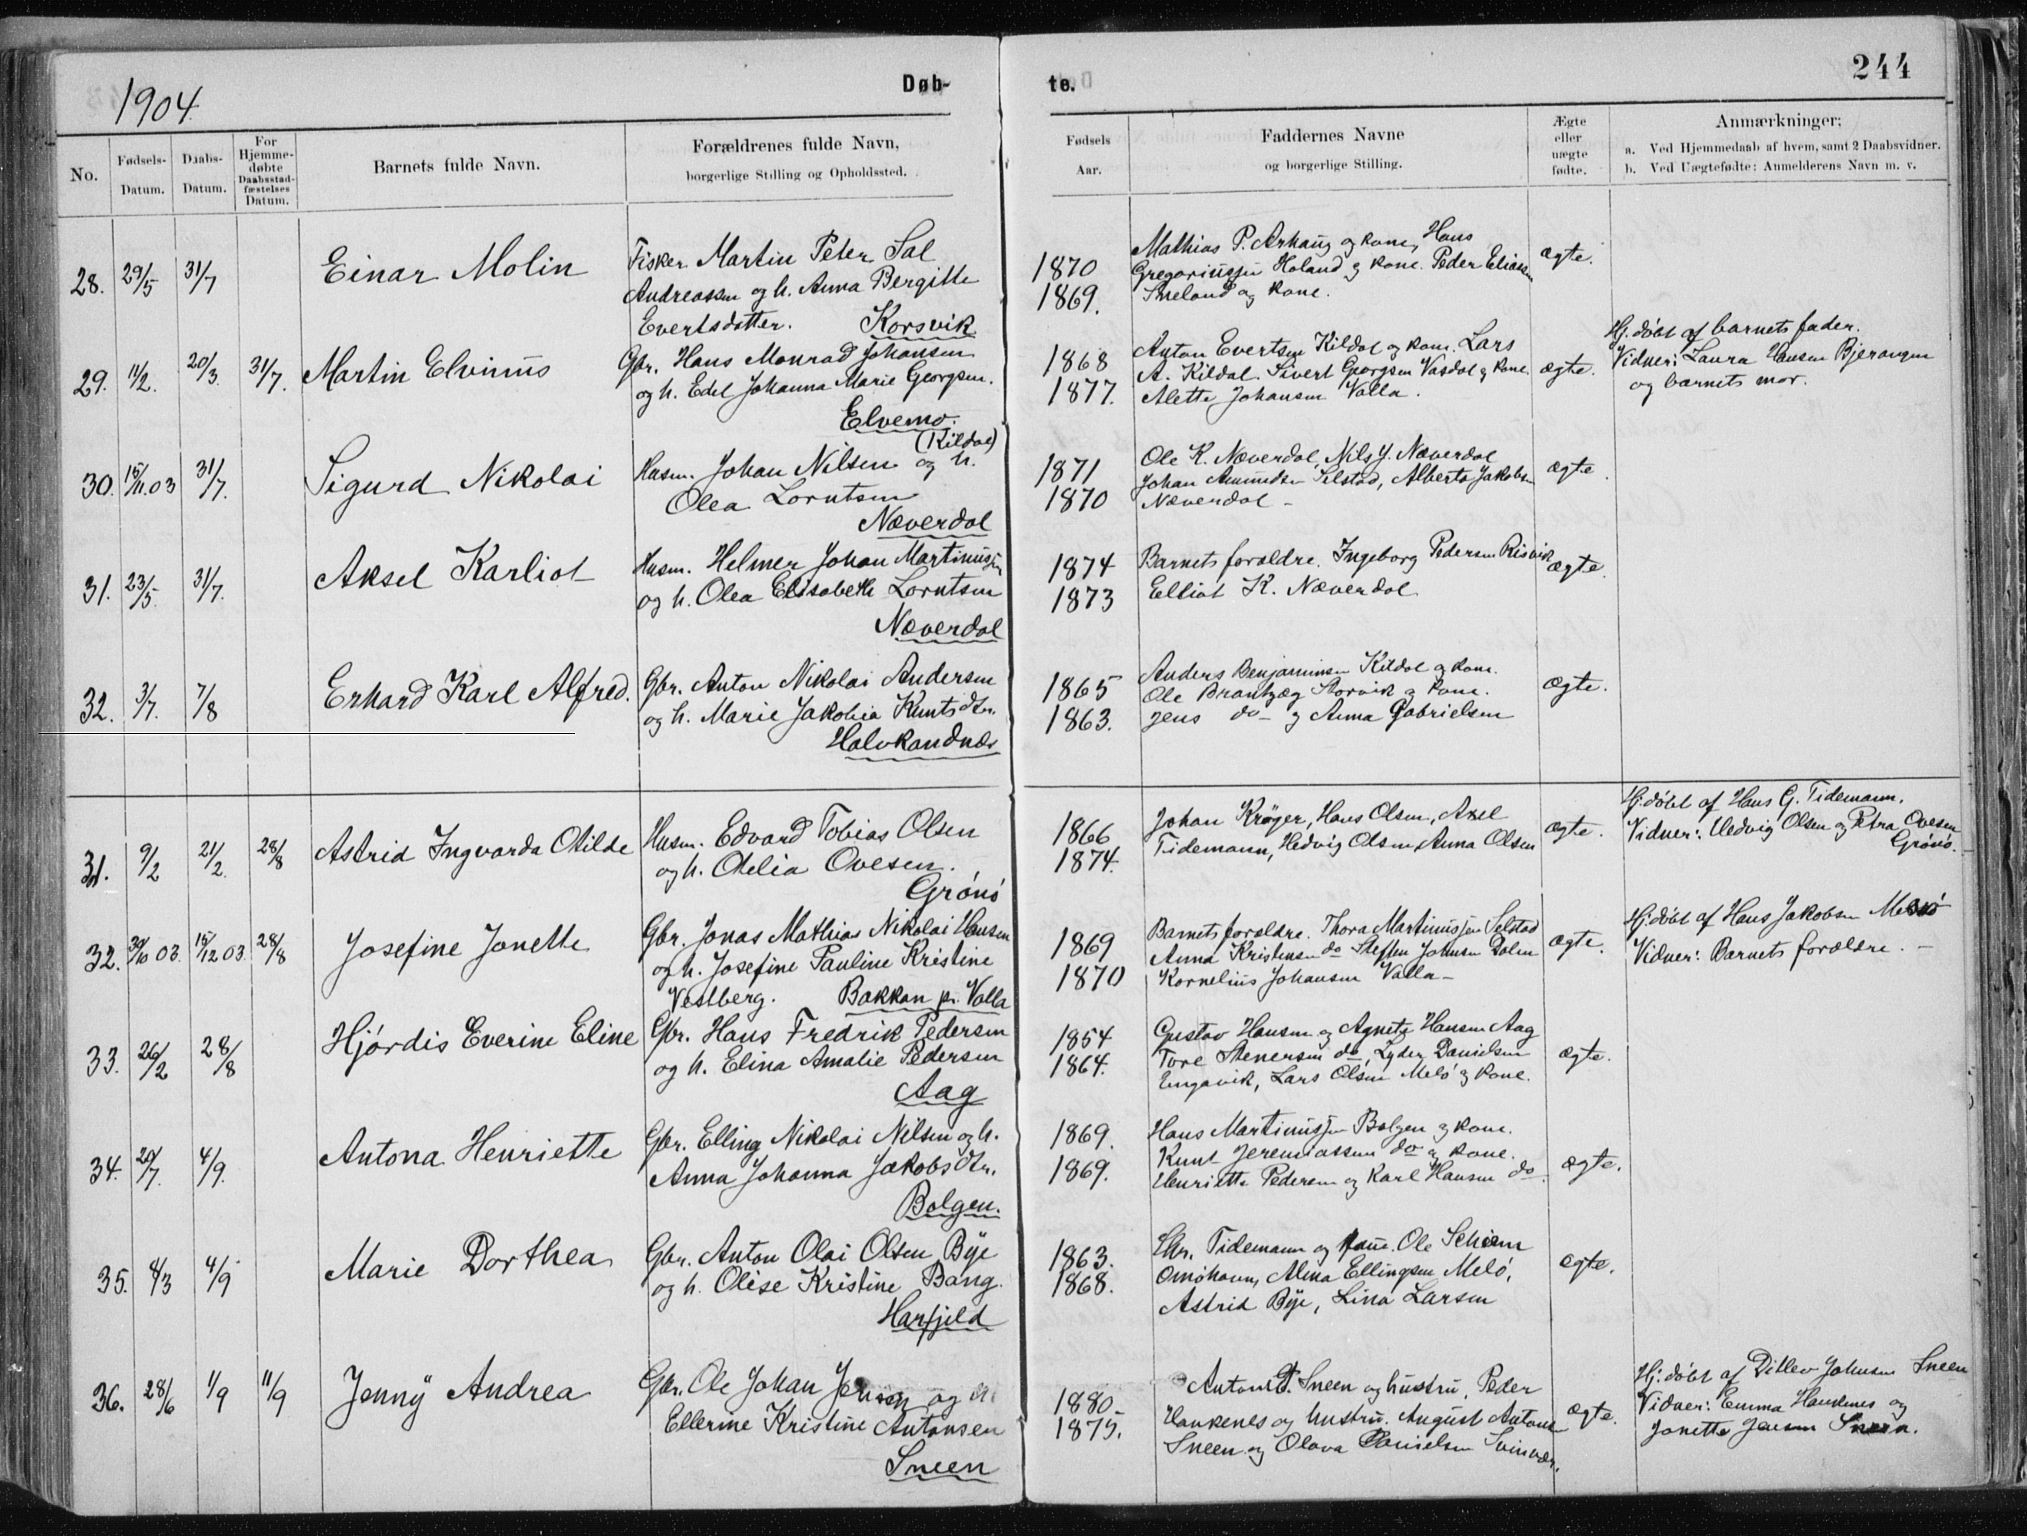 1904
Døb-
te.
244
No.
Fødsels-
Datum.
Daabs-
Datum.
For
Hjemme-
døbte
Daabsstad-
fæstelses
Datum.
Barnets fulde Navn.
Forældrenes fulde Navn,
borgerlige Stilling og Opholdssted.
Fødsels
Aar.
Faddernes Navne
og borgerlige Stilling.
Ægte
eller
uægte
fødte.
Anmærkninger;
a. Ved Hjemmedaab af hvem, samt 2 Daabsvidner.
b. Ved Uægtefødte: Anmelderens Navn m. v.
28. 29/5 31/7 Einar Molin
Fisker Martin Peter Sal
Andreassen og h. Anna Bergitte
Evertsdatter. Korsvik
1870
1869.
Mathias P. Arhaug og kone, Hans
Gregoriussen Holand og kone. Peder Eliassen
Smeland og kone.
ægte.
29. 11/2. 20/3. 31/7. Martin Elvinus
Gbr. Hans Monrad Johansen
og h. Edel Johanna Marie Georgsen.
Elvemo.
(Kildal)
1868
1877.
Anton Evertsen Kildal og kone. Lars
A. Kildal. Sivert Georgsen Vasdal og kone.
Alette Johansen Valla.
ægte.
Hj.døbt af barnets fader.
Vidner: Laura Hansen Bjerangen
og barnets mor.
30. 15/11.03 31/7. Sigurd Nikolai
Husm. Johan Nilsen og h.
Olea Lorntsen
Næverdal
1871
1870
Ole K. Næverdal, Nils J. Næverdal
Johan Amundsen Selstad, Alberta Jakobsen
Næverdal -
ægte
31. 23/5. 31/7. Aksel Karliot
Husm. Helmer Johan Martinussen
og h. Olea Elisabeth Lorntsen
Næverdal
1874
1873
Barnets forældre. Ingeborg Pedersen Risvik
Elliot K. Næverdal
ægte.
32. 3/7. 7/8 Erhard Karl Alfred.
Gbr. Anton Nikolai Andersen
og h. Marie Jakobia Knutsdtr.
Halvkandnæs
1865
1863.
Anders Benjaminsen Kildal og kone.
Ole Brantzæg Storvik og kone.
Jens do og Anna Gabrielsen
ægte.
31. 9/2 21/2. 28/8 Astrid Ingvarda Otilde
Husm. Edvard Tobias Olsen
og h. Otelia Ovesen.
Grönö
1866
1874.
Johan Kröger, Hans Olsen, Axel
Tidemann, Hedvig Olsen, Anna Olsen
ægte.
Hj.döbt af Hans G. Tidemann.
Vidner: Hedvig Olsen og Petra Ovesen
Grönö.
32. 30/10 03. 15/12 03. 28/8 Josefine Jonette
Gbr. Jonas Mathias Nikolai Hansen
og h. Josefine Pauline Kristine
Vestberg. Bakkan pr. Valla
1869
1870
Barnets forældre. Thora Martinussen Selstad
Anna Kristensen do Steffen Johnsen Dalen
Kornelius Johansen Valla -
ægte.
Hj.döbt af Hans Jakobsen
Vidner: Barnets forældre. -
33. 26/2 28/8 Hjördis Everine Eline
Gbr. Hans Fredrik Pedersen
og h. Elina Amalie Pedersen
Aag
1854
1864.
Gustav Hansen og Agnete Hansen Aag
Tore Stenersen do, Lyder Danielsen
Engavik, Lars Olsen Melö og kone.
ægte.
34. 20/7. 4/9. Antona Henriette
Gbr. Elling Nikolai Nilsen og h.
Anna Johanna Jakobsdtr.
Bolgen.
1869.
1869.
Hans Martinussen Bolgen og kone.
Knut Jeremiassen do og kone.
Henriette Pedersen og Karl Hansen do.
ægte.
35. 8/3 4/9 Marie Dorthea
Gbr. Anton Olai Olsen Bye
og h. Olise Kristine Bang.
Harfjeld
1863.
1868.
Chr. Tidemann og frue. Ole Schiem
Ornöhavn, Alma Ellingsen Melö,
Astrid Bye, Lina Larsen
ægte.
36. 28/6 1/9 11/9 Jenny Andrea
Gbr. Ole Johan Jensen og h
Ellerine Kristine Antonsen
Sneen
1880
1875.
Anton P. Sneen og hustru, Peder
Haukenes og hustru. August Antonsen
Sneen og Olava Danielsen Svinvær.
ægte.
Hj.döbt af Ditlev Johnsen Sneen
Vidner: Emma Haukenes og
Jonette Jensen Sneen.